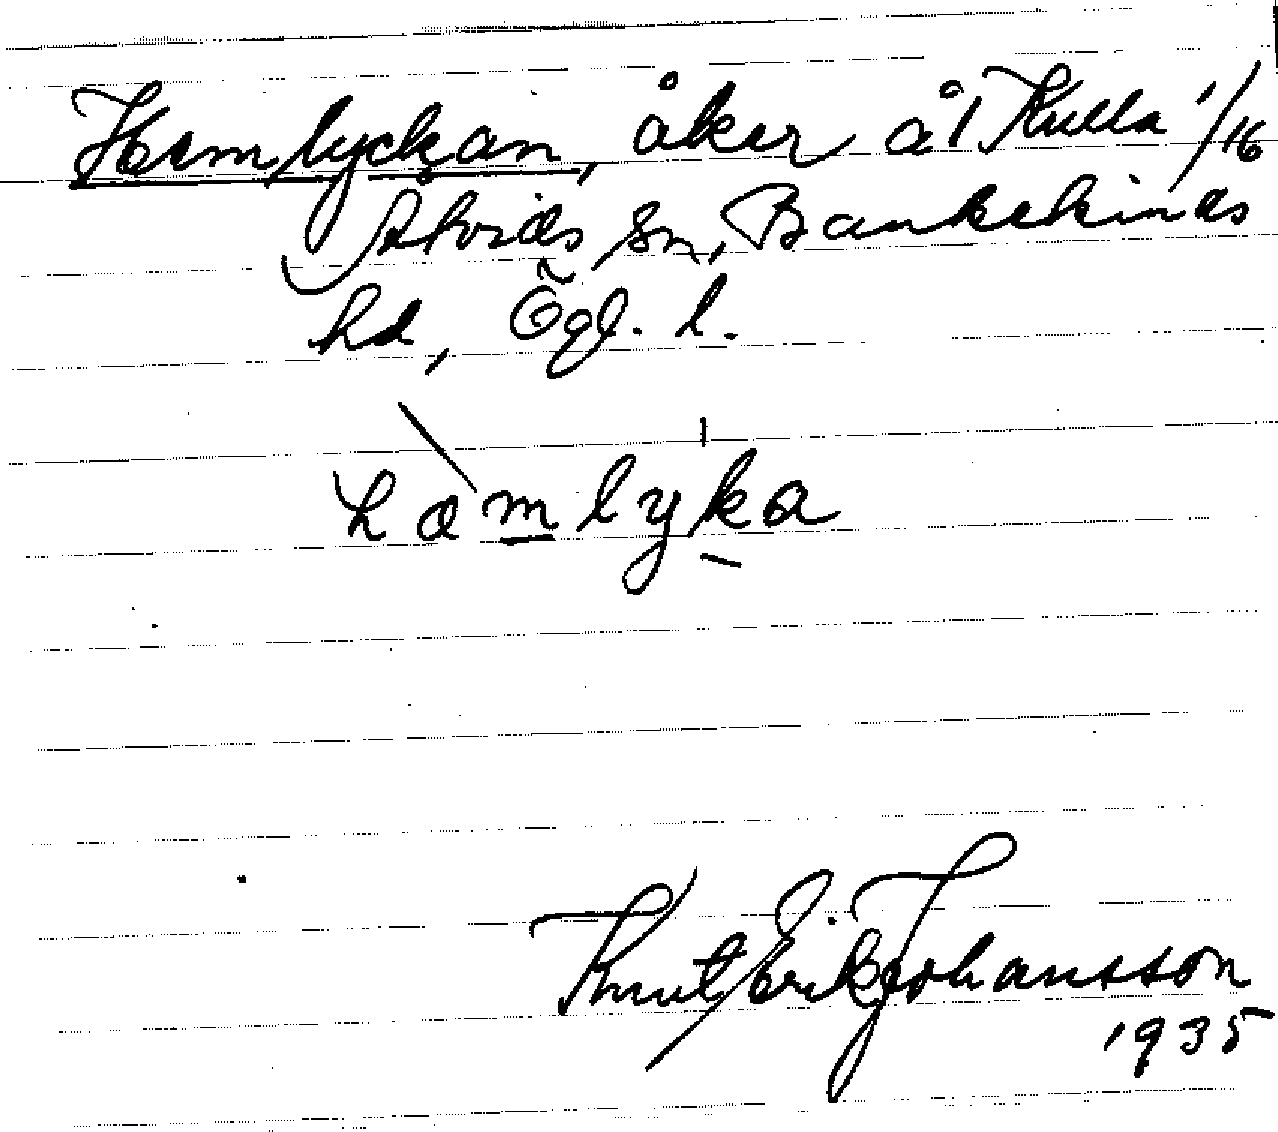 Hemlyckan, åker åt Kulla 1/16
Åtvids sn, Bankekinds
hd, Ögl. l.
hæmlyka
Knut Erik Johansson
1935